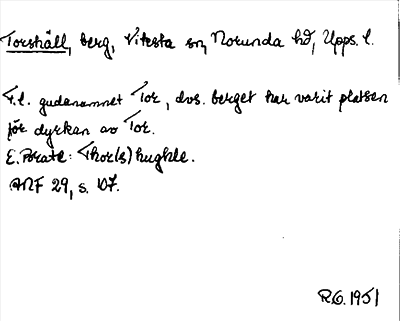 Torshäll, berg, Viksta sn, Norunda hd, Upps. l.
T.l. gudanamnet Tor, dvs. berget har varit platsen
för dyrkan av Tor.
E. Brate: Thor(s)hughle.
ANF 29, s. 107.
R.G. 1951